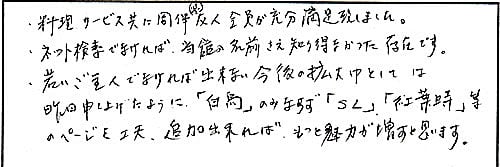 ・料理 サービス共に同伴(の)友人全員が充分満足致しました。
・ネット検索でなければ、当館の名前さえ知り得なかった存在です。
・若いご主人でなければ出来ない今後の拡大口としては
昨日申し上げたように、「白馬」のみならず「SL」、「紅葉時」等
のページを工夫、追加出来れば、もっと魅力が増すと思います。